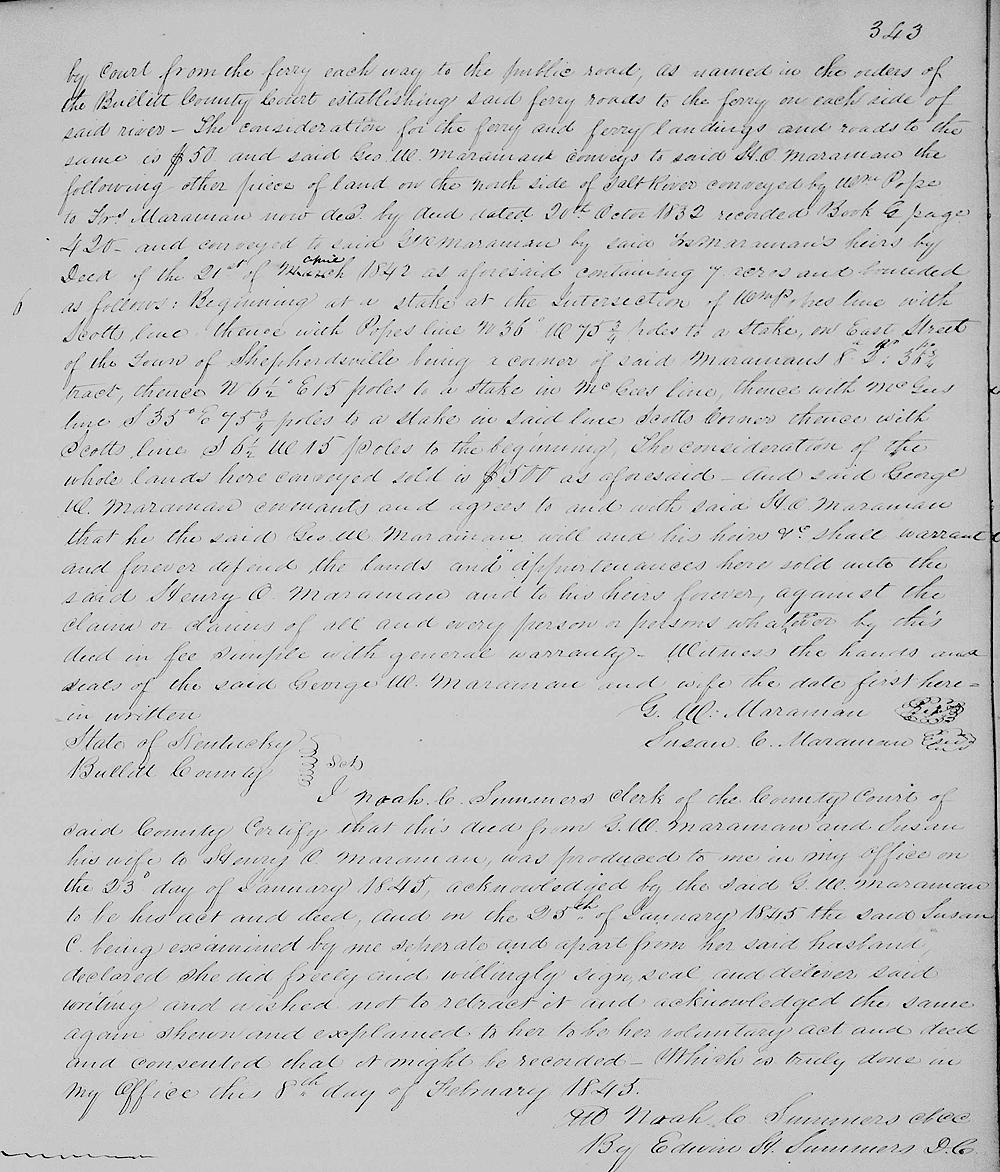 343
by Court from the ferry each way to the public road, as named in the orders of
the Bullitt County Court establishing said ferry roads to the ferry on each side of
said river – The consideration for the ferry and ferry landings and roads to the
same is $50 and said Geo. W. Maraman conveys to said H. C. Maraman the
following other piece of land on the north side of Salt River conveyed by Wm Pope
to Frs Maraman now decd. by deed dated 20th Octor 1832 recorded Book G page
420 – and conveyed to said GW Maraman by said Frs Maraman's heirs by
april
Deed of the 21st of March 1842 as aforesaid containing 7 acres and bounded
6 as follows: Beginning at a stake at the Intersection of Wm Popes line with
Scotts line thence with Popes line N 35° W 75 3/4 poles to a stake, on East Street
of the Town of Shepherdsville being a corner of said Maramans 8
tract, thence N 6 1/2° E 15 poles to a stake in McGees line, thence with McGees
line S 35° E 75 3/4 poles to a stake in said line Scotts Corner thence with
Scotts line S 6 1/2 W 15 poles to the beginning, The consideration of the
whole lands here conveyed sold is $500 as aforesaid – And said George
W. Maraman covenants and agrees to and with said H. C. Maraman
that he the said Geo. W. Maraman will and his heirs &c shall warrant
and forever defend the lands and appurtenances here sold unto the
said Henry C. Maraman and to his heirs forever, against the
claim or claims of all and every person or persons whatever by this
deed in fee simple with general warranty – Witness the hands and
seals of the said George W. Maraman and wife the date first here=
=in written G. W. Maraman
State of Kentucky Susan. C. Maraman
Bullitt County Sct
I Noah. C. Summers clerk of the County Court of
said County Certify that this deed from G. W. Maraman and Susan
his wife to Henry C. Maraman, was produced to me in my office on
the 23d day of January 1845, acknowledged by the said G. W. Maraman
to be his act and deed, and on the 25th of January 1845 the said Susan
C. being examined by me seperate and apart from her said husband,
declared she did freely and willingly sign, seal and deliver said
writing and wished not to retract it and acknowledged the same
again shewn and explained to her to be her voluntary act and deed
and consented that it might be recorded – Which is truly done in
my Office this 8th day of February 1845.
Att Noah. C. Summers cbcc
By Edwin H. Summers D.C.